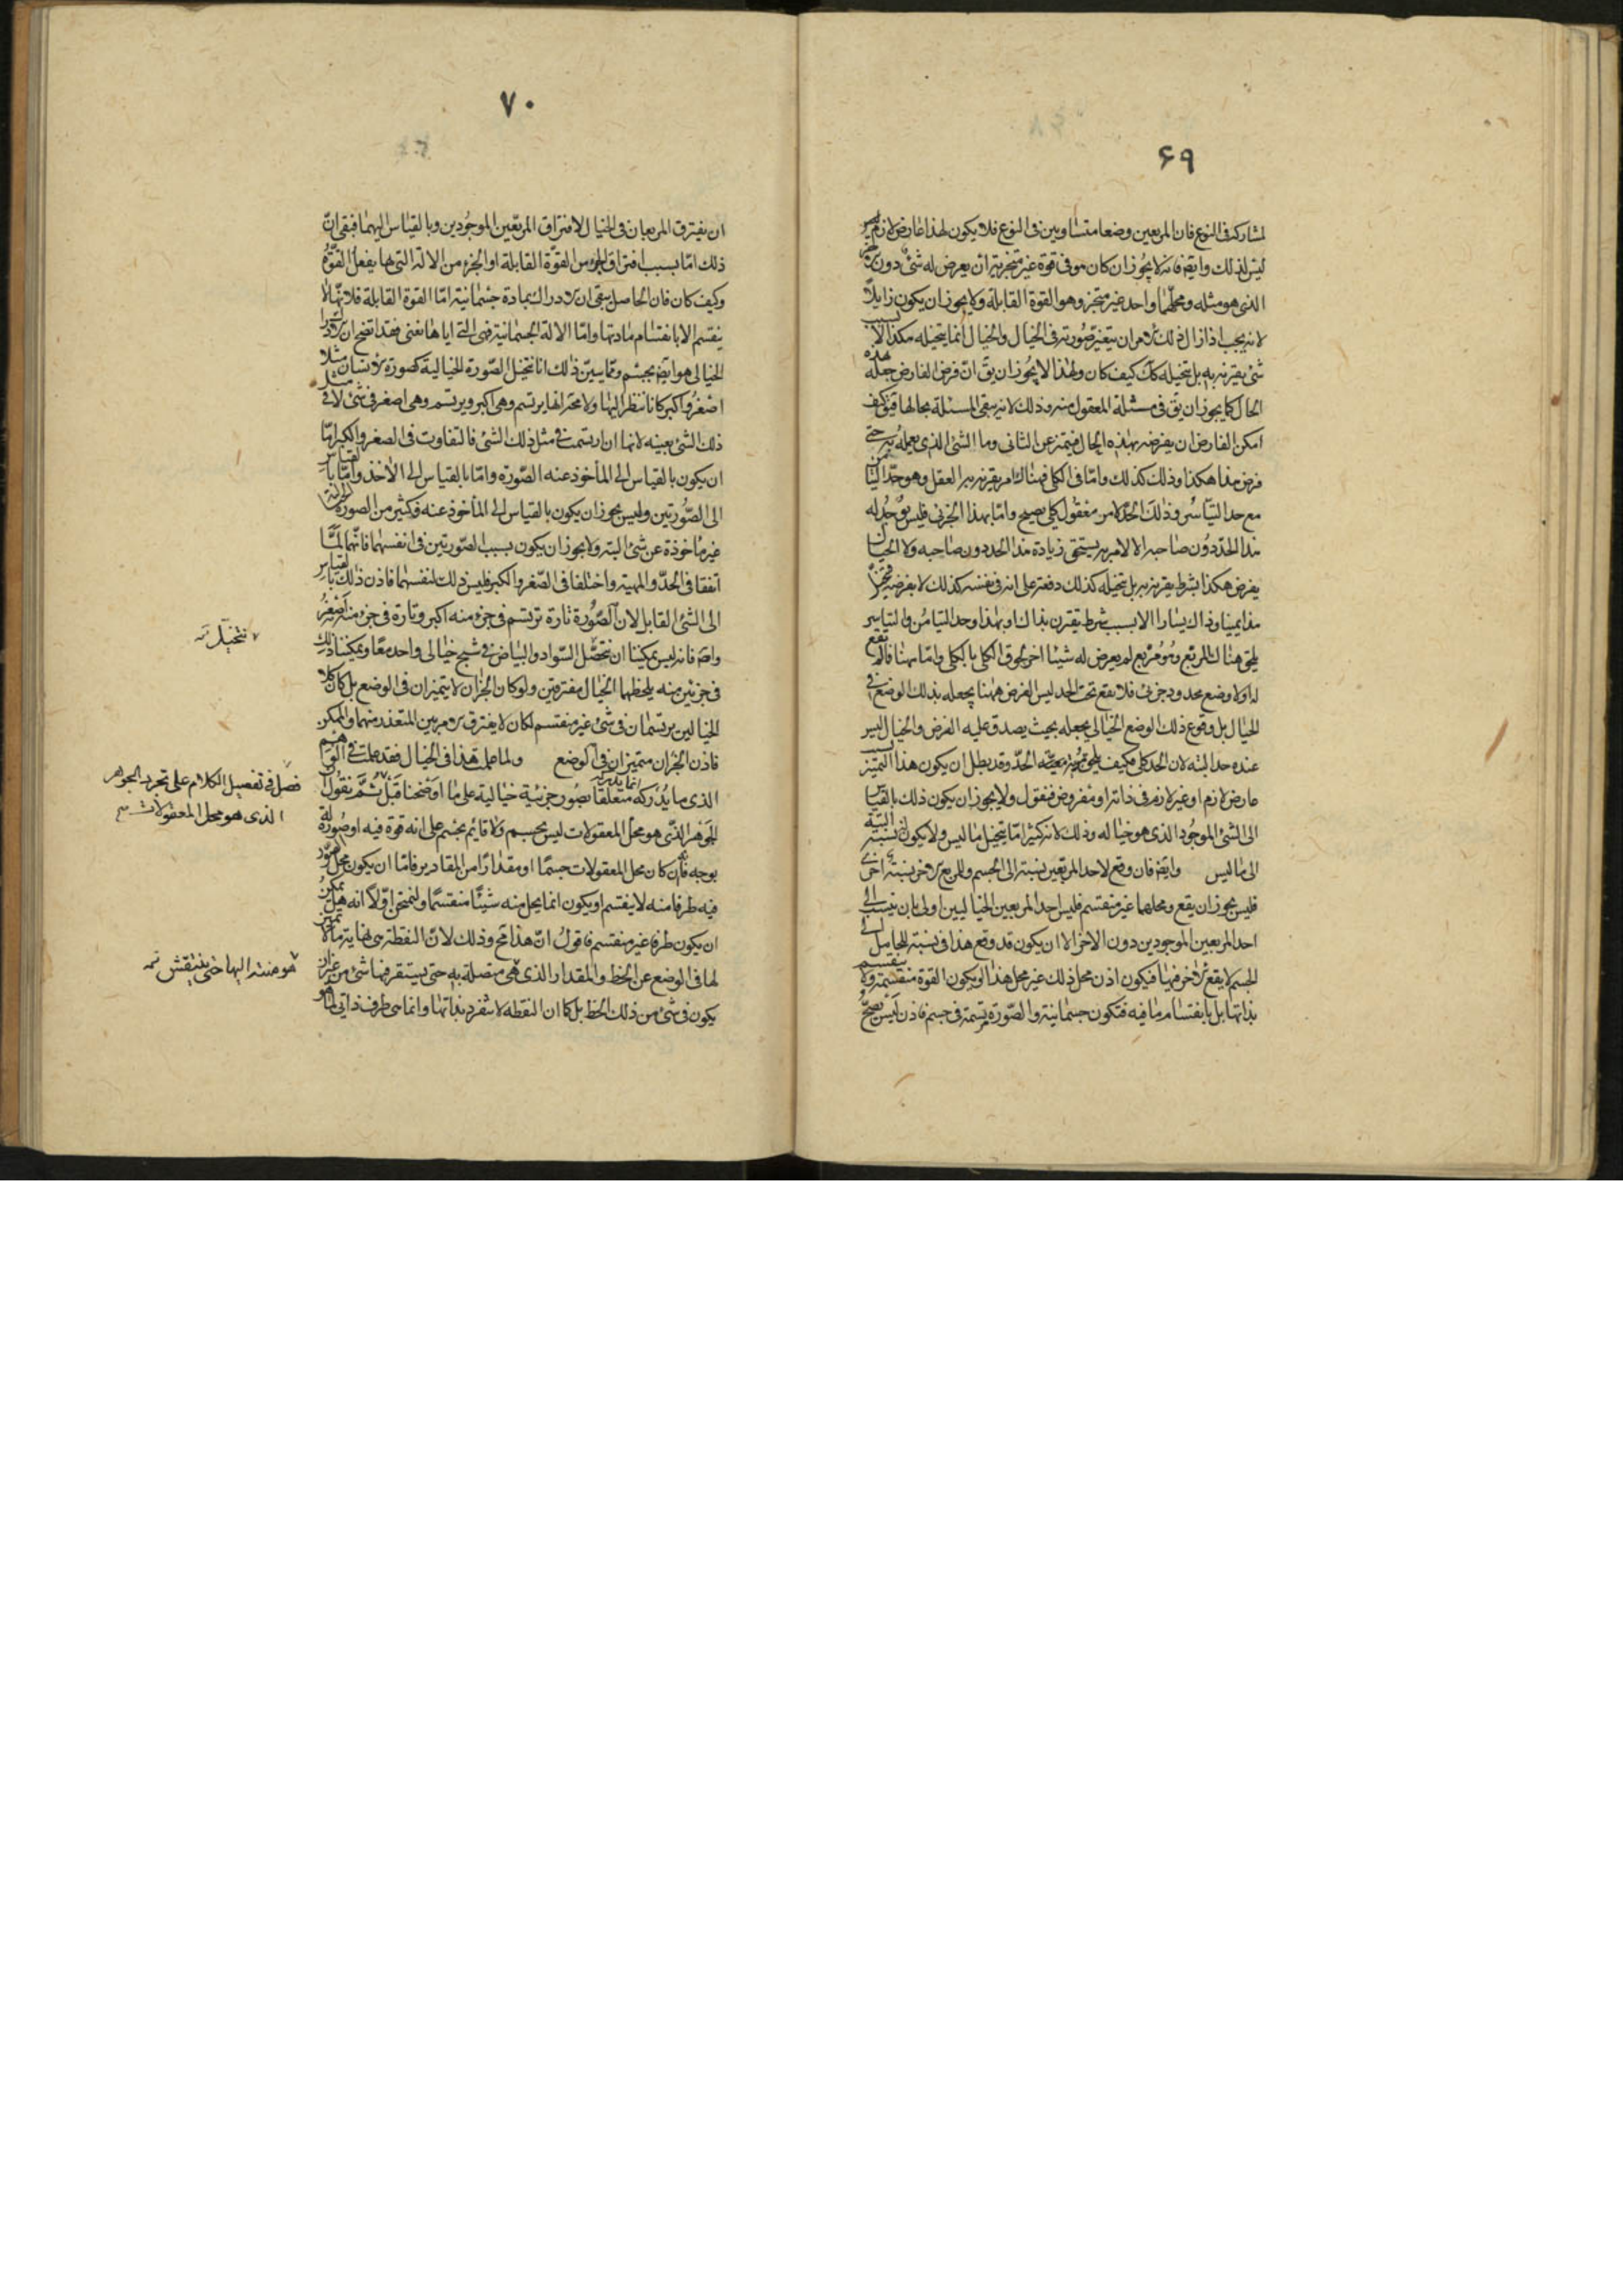 ۶۹
لمشاركه فى النوع فان المربعين وضعا متساويين فى النوع فلا يكون لهذا عارض لازم
ليس لذلك وايضا فانه لا يجوز ان كان هو فى قوة غير متجزية ان يعرض له شئ دون
الذى هو مثله ومحلهما واحد غير متجز وهو القوة القابلة ولا يجوز ان يكون زايلا
لانه يجب اذا زال ذلك الامر ان يتغير صورته فى الخيال والخيال انما يتخيله هكذا لا بسبب
شئ يقرنه به بل يتخيله كك كيف كان ولهذا لا يجوز ان يق ان فرض الفارض جعله بهذه
الحال كما يجوز ان يق فى مثله المعقول منه وذلك لانه يبقى المسئلة بحالها فيق كيف
امكن الفارض ان يفرضه بهذه الحال فيتميز عن الثانى وما الشئ الذى يعمله به حتى
فرض هذا هكذا وذلك كذلك واما فى الكلى فهناك امر يقرنه به العقل وهو حد التيامن
مع حد التياسر وذلك الحد لامر معقول كلى يصح واما بهذا الجزئى فليس يوجد له
هذا الحد دون صاحبه الا لامر به يستحق زيادة هذا الحد دون صاحبه ولا الخيال
يفرض هكذا بشرط يقرنه به بل يتخيله كذلك دفعة على انه فى نفسه كذلك لا بفرضه فيتخيل
هذا يمينا وذاك يسارا الا بسبب شرط يقترن بذاك او بهذا وحد التيامن والتياسر
يلحق هناك المربع وهو مربع لم يعرض له شيئا اخر لحوق الكلى بالكلى واما ههنا فما لم يقع
له اولا وضع محدود جزئى فلا يقع تحت الحد ليس الفرض ههنا يجعله بذلك الوضع فى
الخيال بل وقوع ذلك الوضع الخيالى يجعله بحيث يصدق عليه الفرض والخيال ليس
عنده حد البته لان الحد كلى فكيف يلحق معية الحد وقد بطل ان يكون هذا التميز بسبب
عارض لازم او غير لازم فى ذاته او مفروض فنقول ولا يجوز ان يكون ذلك بالقياس
الى الشئ الموجود الذى هو خياله وذلك لانه كثيرا ما يتخيل ما ليس ولا يكون له نسبة البتة
الى ما ليس وايضا فان وقع لاحد المربعين نسبة الى الجسم وللمربع الاخر نسبة اخرى
فليس يجوز ان يقع ومحلهما غير منقسم فليس احد المربعين الخياليين اولى بان ينسب الى
احد المربعين الموجودين دون الاخر الا ان يكون قد وقع هذا فى نسبة للحامل الى
الجسم لا يقع الاخر فيها فيكون اذن محل ذلك غير محل هذا ويكون القوة منقسمة ولا ينقسم
بذاتها بل بانقسام ما فيه فتكون جسمانية والصورة مرتسمة فى جسم فاذن ليس يصح
۷۰
ان يفترق المربعان فى الخيال لافتراق المربعين الموجودين وبالقياس اليهما فبقى ان
ذلك اما بسبب افتراق الجزء من القوة القابلة او الجزء من الالة التى بها يفعل القوة
وكيف كان فان الحاصل يبقى ان الادراك بمادة جسمانية اما القوة القابلة فلانها لا
ينقسم الا بانقسام مادتها واما الالة الجسمانية فهى التى اياها نعنى فقد اتضح ان الادراك
الخيالى هو ايضا بجسم ومما يبين ذلك انا نتخيل الصورة الخيالية كصورة الانسان مثلا
اصغر واكبر كانا ننظر اليها ولا محة انها يرتسم وهى اكبر ويرتسم وهى اصغر فى شئ لا فى مثل
ذلك الشئ بعينه لانها ان ارتسمت فى مثل ذلك الشئ فالتفاوت فى الصغر والكبر اما
ان يكون بالقياس الى المأخوذ عنه الصورة واما بالقياس الى الاخذ واما بالقياس
الى الصورتين وليس يجوز ان يكون بالقياس الى المأخوذ عنه فكثير من الصور الخيالية
غير ماخوذة عن شئ البته ولا يجوز ان يكون بسبب الصورتين فى انفسهما فانهما لما
اتفقا فى الحد والمهية واختلفا فى الصغر والكبر فليس ذلك لنفسيهما فاذن ذلك بالقياس
الى الشئ القابل لان الصورة تارة ترتسم فى جزء منه اكبر وتارة فى جزء منه اصغر
وايضا فانه ليس يمكننا ان نتخيل السواد والبياض فى شبح خيالى واحد معا ويمكننا ذلك
فى جزئين منه يلحظهما الخيال مفترقين ولو كان الجزان لا يتميزان فى الوضع بل كان كلا
الخيالين يرتسمان فى شئ غير منقسم لكان لا يفترق الامر بين المتعذر منهما والممكن
فاذن الجزان متميزان فى الوضع ولما علمت هذا فى الخيال فقد علمت فى الوهم
الذى ما يدركه انما يدركه متعلقا بصور جزئية خيالية على ما اوضحنا قبل ثم نقول ان
الجوهر الذى هو محل المعقولات ليس بجسم ولا قايم بجسم على انه قوة فيه او صورة له
بوجه فانه ان كان محل المعقولات جسما او مقدارا من المقادير فاما ان يكون محل الصور
فيه طرفا منه لا ينقسم او يكون انما يحل منه شيئا منقسما ولنمتحن اولا انه هل يمكن
ان يكون طرفا غير منقسم فاقول ان هذا مح وذلك لان النقطة هى نهاية ما لا تميز
لها فى الوضع عن الخط والمقدار الذى هى متصلة به حتى يستقر فيها شئ من غير ان
يكون فى شئ من ذلك الخط بل كما ان النقطه لا تنفرد بذاتها وانما هى طرف ذاتى لما هو
نتخيل
فصل فى تفصيل الكلام على تجرد الجوهر
الذى هو محل المعقولات
هو منته اليها حتى ينتقش